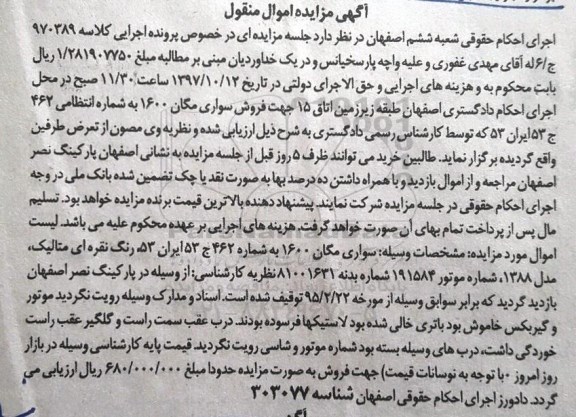 آگهی مزایده اموال منقول
اجرای احکام حقوقی شعبه ششم اصفهان در نظر دارد جلسه مزایده ای در خصوص پرونده اجرایی کلاسه ۹۷۰۳۸۹
ج/۶ له آقای مهدی غفوری و علیه واچه پارسخیانس و دریک خداوردیان مبنی بر مطالبه مبلغ ۱/۲۸۱۹۰۷۷۵۰ ریال
بابت محکوم به و هزینه های اجرایی و حق الاجرای دولتی در تاریخ ۱۳۹۷/۱۰/۱۲ ساعت ۱۱/۳۰ صبح در محل
اجرای احکام دادگستری اصفهان طبقه زیرزمین اتاق ۱۵ جهت فروش سواری مگان ۱۶۰۰ به شماره انتظامی ۴۶۲
ج ۵۳ ایران ۵۳ که توسط کارشناس رسمی دادگستری به شرح ذیل ارزیابی شده و نظریه وی مصون از تعرض طرفین
واقع گردیده برگزار نماید. طالبین خرید می توانند ظرف ۵ روز قبل از جلسه مزایده به نشانی اصفهان پارکینگ نصر
اصفهان مراجعه و از اموال بازدید و با همراه داشتن ده درصد بها به صورت نقد یا چک تضمین شده بانک ملی در وجه
اجرای احکام حقوقی در جلسه مزایده شرکت نمایند. پیشنهاد دهنده بالاترین قیمت برنده مزایده خواهد بود. تسلیم
مال پس از پرداخت تمام بهای آن صورت خواهد گرفت. هزینه های اجرایی بر عهده محکوم علیه می باشد. لیست
اموال مورد مزایده: مشخصات وسیله: سواری مگان ۱۶۰۰ به شماره ۴۶۲ ج ۵۳ ایران ۵۳، رنگ نقره ای متالیک،
مدل ۱۳۸۸، شماره موتور ۱۹۱۵۸۴ شماره بدنه ۸۱۰۰۱۶۳۱ نظریه کارشناسی: از وسیله در پارکینگ نصر اصفهان
بازدید گردید که برابر سوابق وسیله از مورخه ۹۵/۲/۲۲ توقیف شده است. اسناد و مدارک وسیله رویت نگردید موتور
و گیربکس خاموش بود باتری خالی شده بود لاستیکها فرسوده بودند. درب عقب سمت راست و گلگیر عقب راست
خوردگی داشت، درب های وسیله بسته بود شماره موتور و شاسی رویت نگردید. قیمت پایه کارشناسی وسیله در بازار
روز امروز (با توجه به نوسانات قیمت) جهت فروش به صورت مزایده حدودا مبلغ ۶۸۰/۰۰۰/۰۰۰ ریال ارزیابی می
گردد. دادورز اجرای احکام حقوقی اصفهان شناسه ۳۰۳۰۷۷